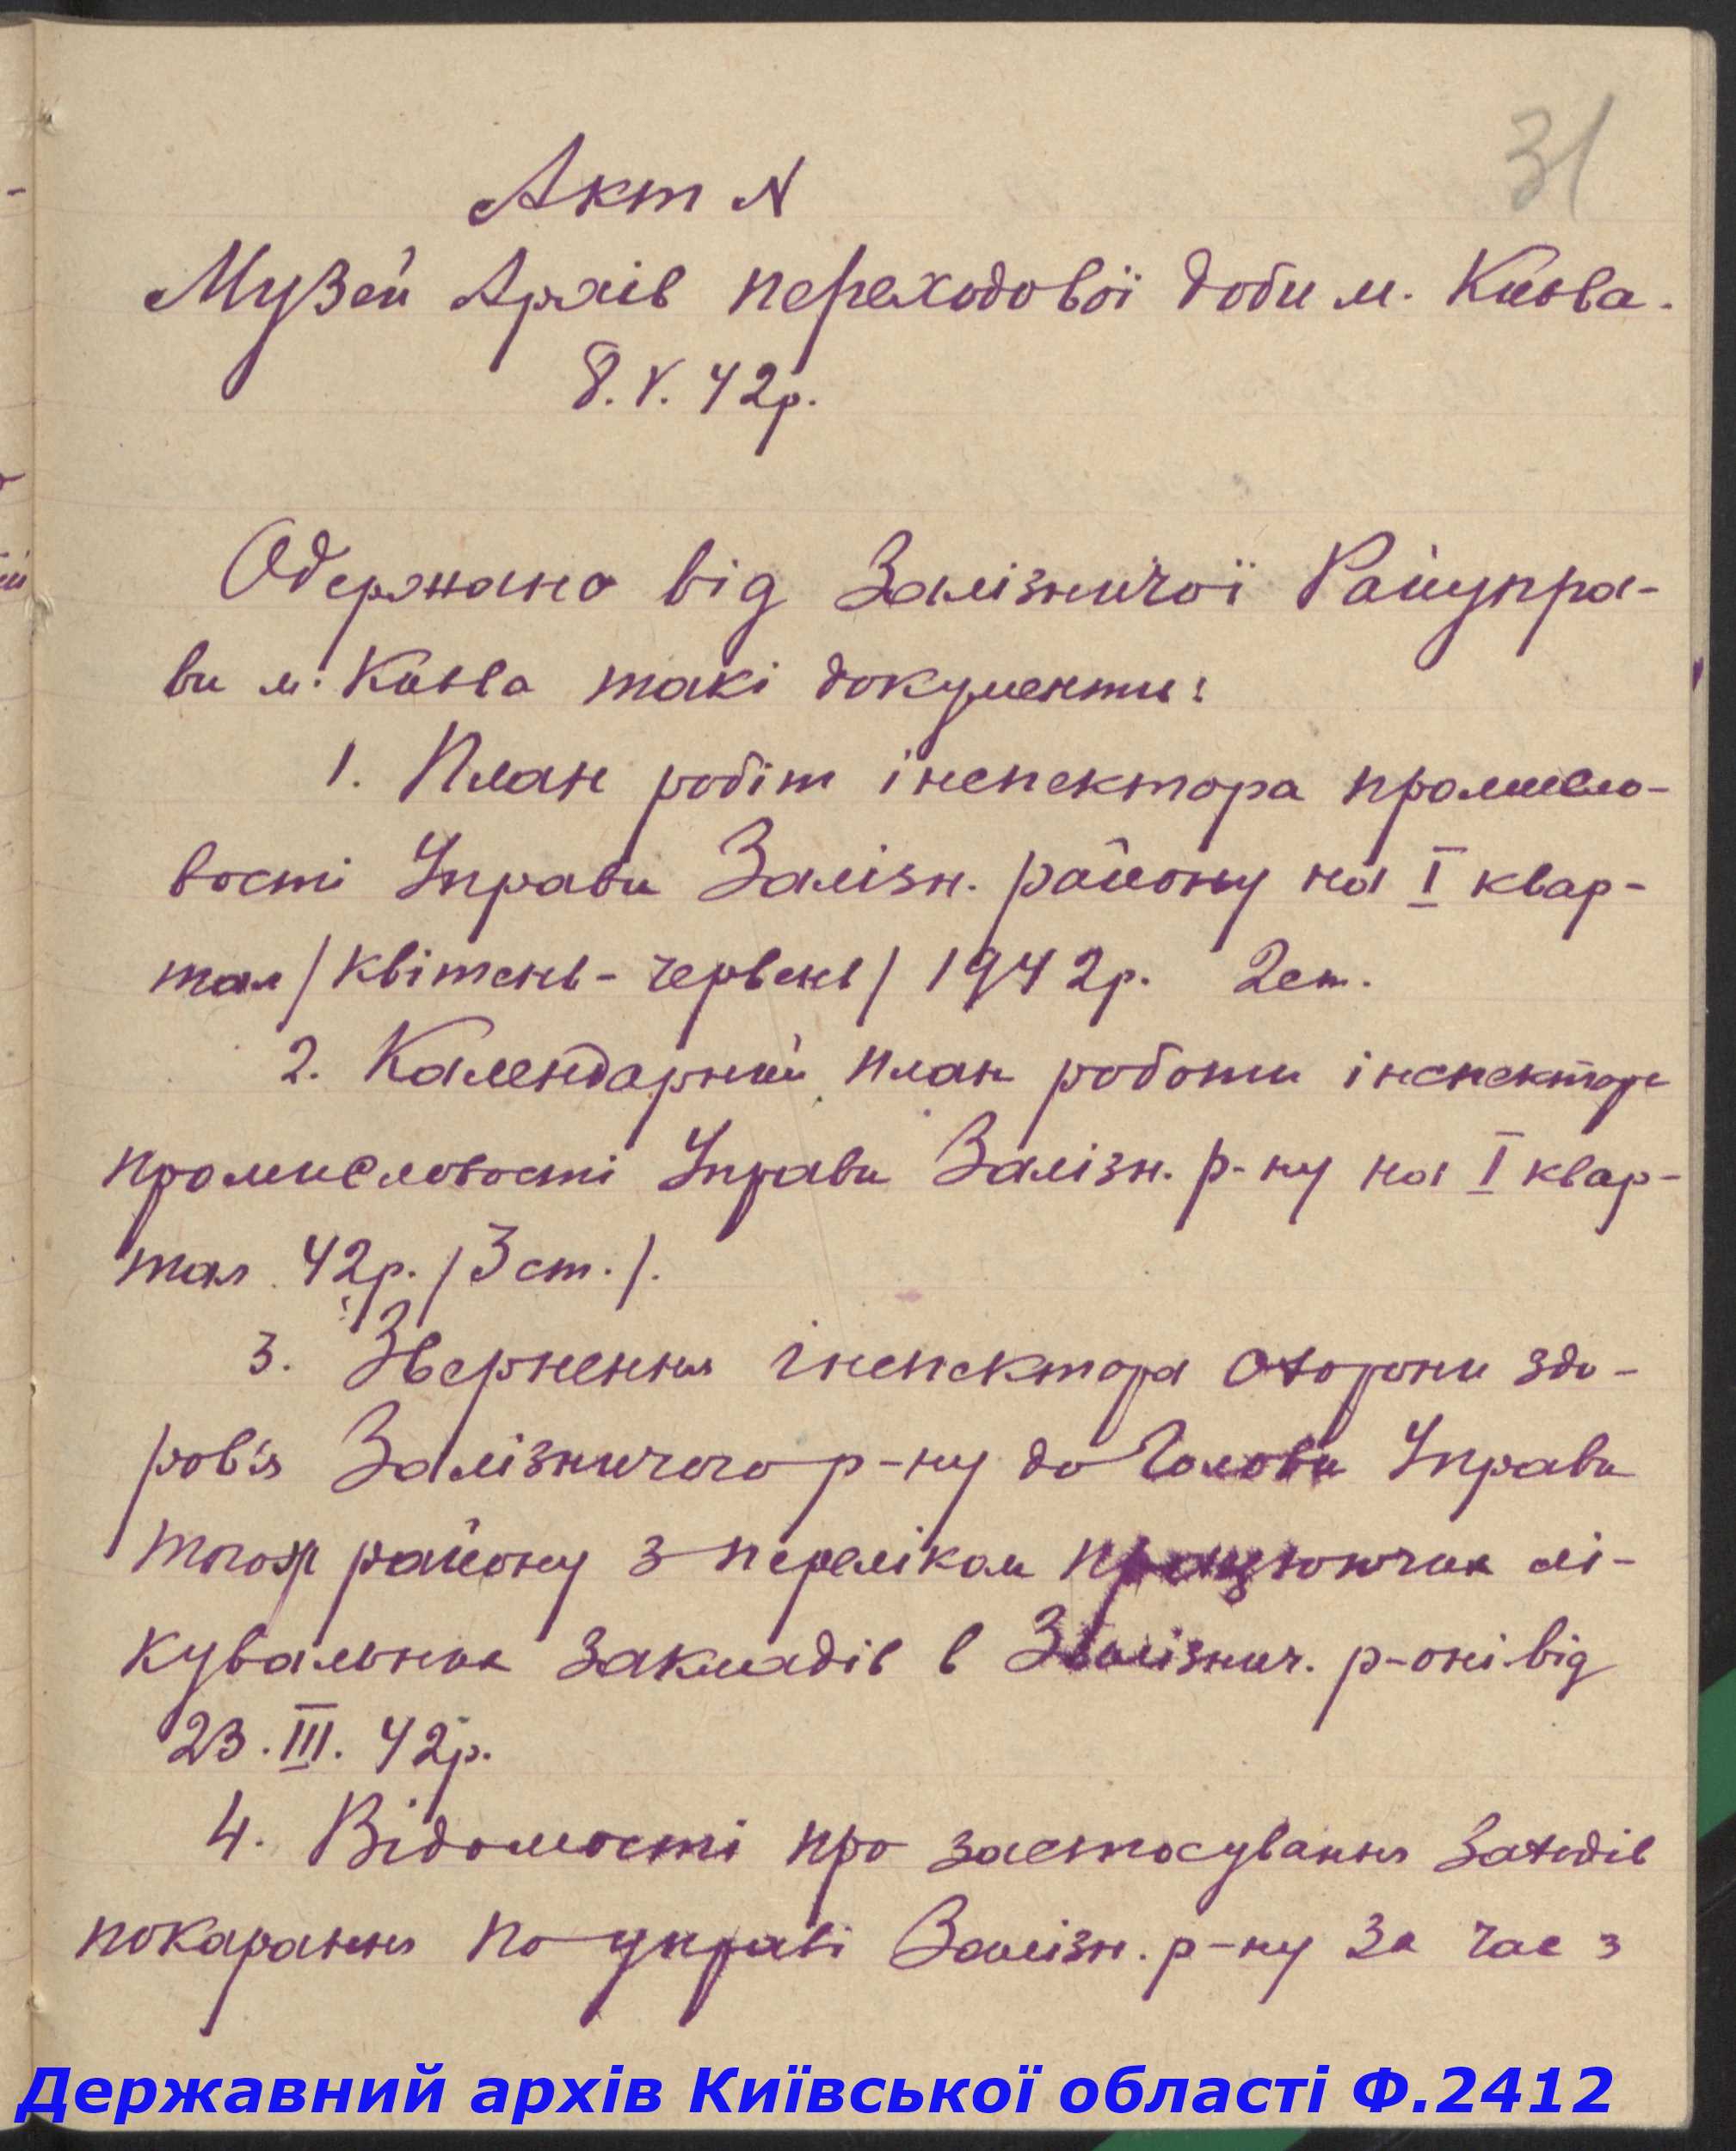 31
Акт N
Музей Архів переходової доби м. Києва.
8.V.42р.
Одержано від Залізничої Райупра-
ви м. Києва такі документи:
1. План робіт інспектора промисло-
вості Управи Залізн. району на I квар-
тал /квітень-червень/ 1942р. 2ст.
2. Календарний план роботи інспектора
промисловості Управи Залізн. р-ну на I квар-
тал 42р. /3ст./.
3. Звернення інспектора охорони здо-
ров'я Залізничого р-ну до Голови Управи
того ж району з переліком працюючих лі-
кувальних закладів в Залізнич. р-оні від
23.III.42р.
4. Відомості про застосування заходів
покарання по управі Залізн. р-ну за час з
Державний архів Київської області Ф.2412